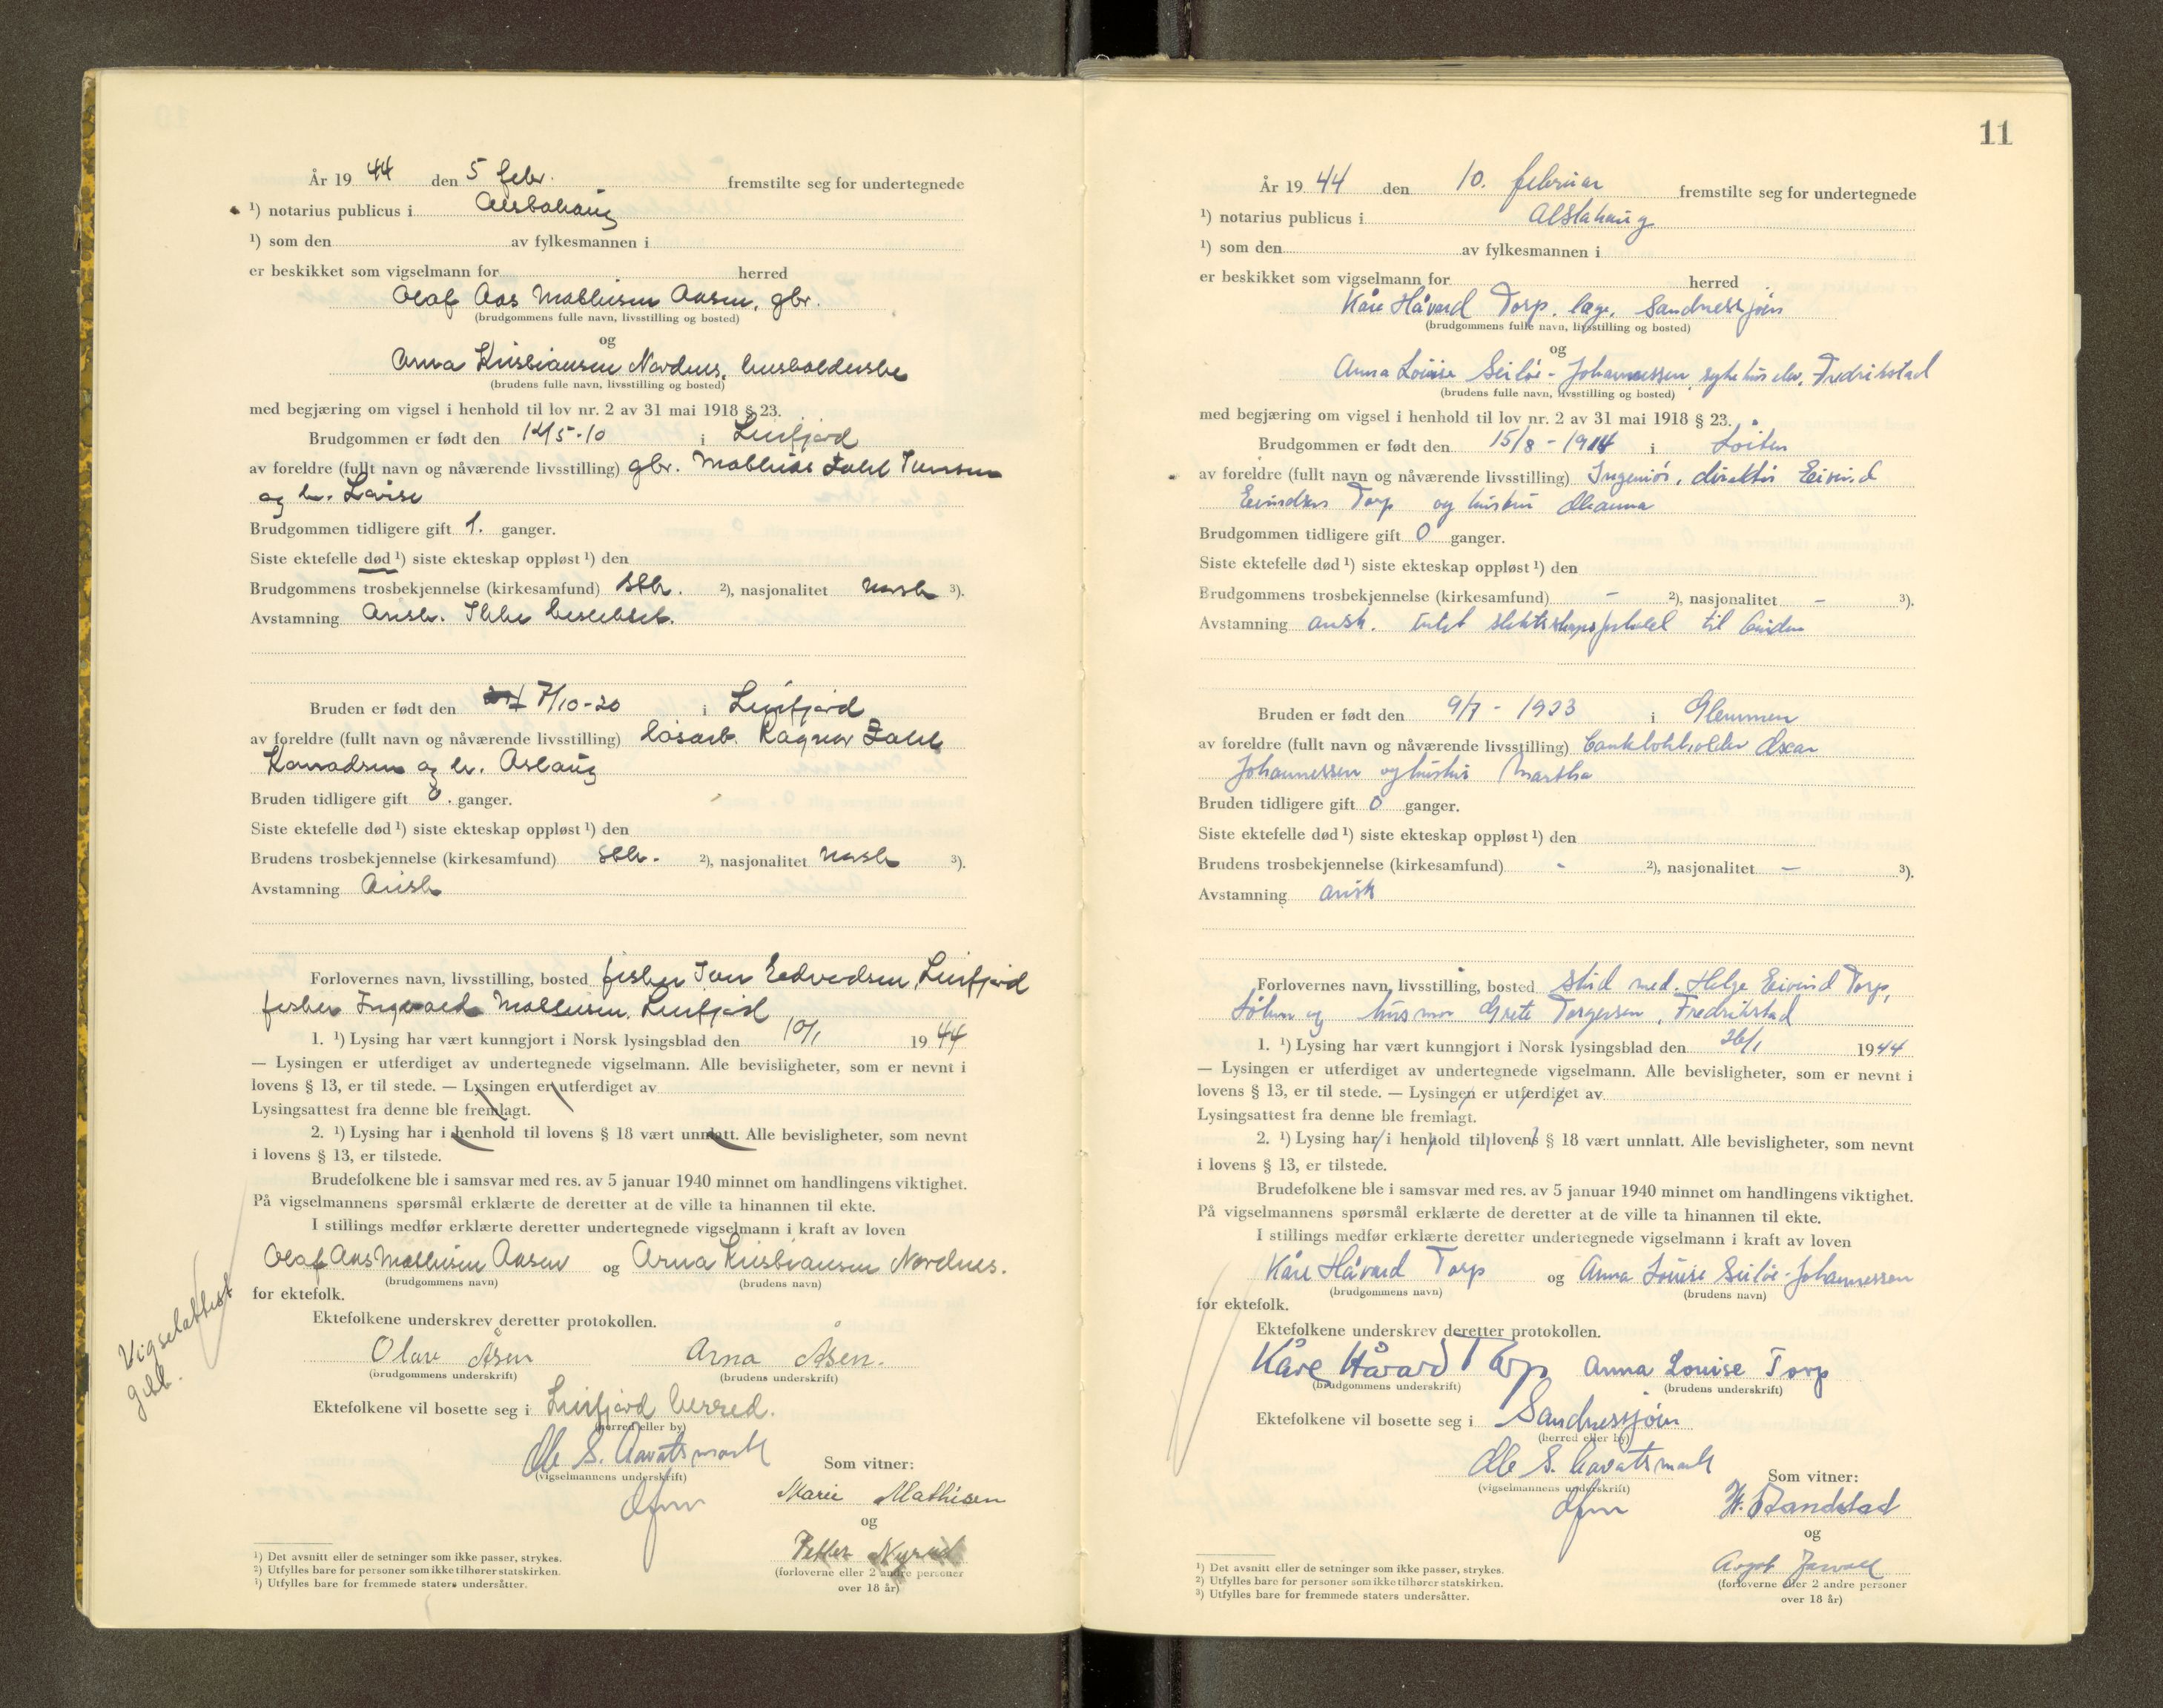 År 19 44 den 5 febr. fremstilte seg for undertegnede
¹) notarius publicus i Alstahaug
¹) som den av fylkesmannen i
er beskikket som vigselmann for herred
Olaf Aas Mathisen Aasen, gbr.
(brudgommens fulle navn, livsstilling og bosted)
og
Arna Kristiansen Nordnes, husholderske
(brudens fulle navn, livsstilling og bosted)
med begjæring om vigsel i henhold til lov nr. 2 av 31 mai 1918 § 23.
Brudgommen er født den i Leirfjord
av foreldre (fullt navn og nåværende livsstilling) gbr. Mathias Zahl Jensen
og h. Lovise
Brudgommen tidligere gift 1. ganger.
Siste ektefelle død ¹) siste ekteskap oppløst ¹) den
Brudgommens trosbekjennelse (kirkesamfund) stk. ²), nasjonalitet norsk ³).
Avstamning Arisk. Ikke beslektet.
Bruden er født den 7/10-20 i Leirfjord
av foreldre (fullt navn og nåværende livsstilling) løsarb. Ragnar Zahl
Konradsen og h. Aslaug
Bruden tidligere gift 0. ganger.
Siste ektefelle død ¹) siste ekteskap oppløst ¹) den
Brudens trosbekjennelse (kirkesamfund) stk. ²), nasjonalitet norsk ³).
Avstamning Arisk
Forlovernes navn, livsstilling, bosted fisker Edvardsen, Leirfjord
fisker Ingvald Mathisen, Leirfjord
1. ¹) Lysing har vært kunngjort i Norsk lysingsblad den 10/1 19 44
— Lysingen er utferdiget av undertegnede vigselmann. Alle bevisligheter, som er nevnt i
lovens § 13, er til stede. — Lysingen er utferdiget av
Lysingsattest fra denne ble fremlagt.
2. ¹) Lysing har i henhold til lovens § 18 vært unnlatt. Alle bevisligheter, som nevnt
i lovens § 13, er tilstede.
Brudefolkene ble i samsvar med res. av 5 januar 1940 minnet om handlingens viktighet.
På vigselmannens spørsmål erklærte de deretter at de ville ta hinannen til ekte.
I stillings medfør erklærte deretter undertegnede vigselmann i kraft av loven
Olaf Aas Mathisen Aasen og Arna Kristiansen Nordnes.
(brudgommens navn) (brudens navn)
for ektefolk.
Vigselattest
gitt.
Ektefolkene underskrev deretter protokollen.
Olav Åsen Arna Åsen.
(brudgommens underskrift) (brudens underskrift)
Ektefolkene vil bosette seg i Leirfjord herred.
(herred eller by)
Ole S. Aavatsmark
(vigselmannens underskrift)
Som vitner:
Marie Mathisen
og
Petter
(forloverne eller 2 andre personer
over 18 år)
¹) Det avsnitt eller de setninger som ikke passer, strykes.
²) Utfylles bare for personer som ikke tilhører statskirken.
³) Utfylles bare for fremmede staters undersåtter.
11
År 19 44 den 10. februar fremstilte seg for undertegnede
¹) notarius publicus i Alstahaug
¹) som den av fylkesmannen i
er beskikket som vigselmann for herred
Kåre Håvard Torp, læge, Sandnessjøen
(brudgommens fulle navn, livsstilling og bosted)
og
Anna Louise Seiløe-Johannessen, sykehuselev, Fredrikstad
(brudens fulle navn, livsstilling og bosted)
med begjæring om vigsel i henhold til lov nr. 2 av 31 mai 1918 § 23.
Brudgommen er født den 15/8 - 1914 i Løiten
av foreldre (fullt navn og nåværende livsstilling) Ingeniør, direktør Eivind
Eivindsen Torp og hustru
Brudgommen tidligere gift 0 ganger.
Siste ektefelle død ¹) siste ekteskap oppløst ¹) den
Brudgommens trosbekjennelse (kirkesamfund) - ²), nasjonalitet - ³).
Avstamning arisk. Intet slektskapsforhold til bruden
Bruden er født den 9/7 - 1923 i Glemmen
av foreldre (fullt navn og nåværende livsstilling) bankbokholder Oscar
Johannessen og hustru Martha
Bruden tidligere gift 0 ganger.
Siste ektefelle død ¹) siste ekteskap oppløst ¹) den
Brudens trosbekjennelse (kirkesamfund) - ²), nasjonalitet - ³).
Avstamning arisk
Forlovernes navn, livsstilling, bosted stud med. Helge Eivind Torp,
og husmor Grete Torgersen, Fredrikstad
1. ¹) Lysing har vært kunngjort i Norsk lysingsblad den 26/1 1944
— Lysingen er utferdiget av undertegnede vigselmann. Alle bevisligheter, som er nevnt i
lovens § 13, er til stede. — Lysingen er utferdiget av
Lysingsattest fra denne ble fremlagt.
2. ¹) Lysing har i henhold til lovens § 18 vært unnlatt. Alle bevisligheter, som nevnt
i lovens § 13, er tilstede.
Brudefolkene ble i samsvar med res. av 5 januar 1940 minnet om handlingens viktighet.
På vigselmannens spørsmål erklærte de deretter at de ville ta hinannen til ekte.
I stillings medfør erklærte deretter undertegnede vigselmann i kraft av loven
Kåre Håvard Torp og Anna Louise Seiløe-Johannessen
(brudgommens navn) (brudens navn)
for ektefolk.
Ektefolkene underskrev deretter protokollen.
Kåre Håvard Torp Anna Louise Torp
(brudgommens underskrift) (brudens underskrift)
Ektefolkene vil bosette seg i Sandnessjøen
(herred eller by)
Ole S. Aavatsmark
(vigselmannens underskrift)
Som vitner:
H. Sandstad
og
(forloverne eller 2 andre personer
over 18 år)
¹) Det avsnitt eller de setninger som ikke passer, strykes.
²) Utfylles bare for personer som ikke tilhører statskirken.
³) Utfylles bare for fremmede staters undersåtter.